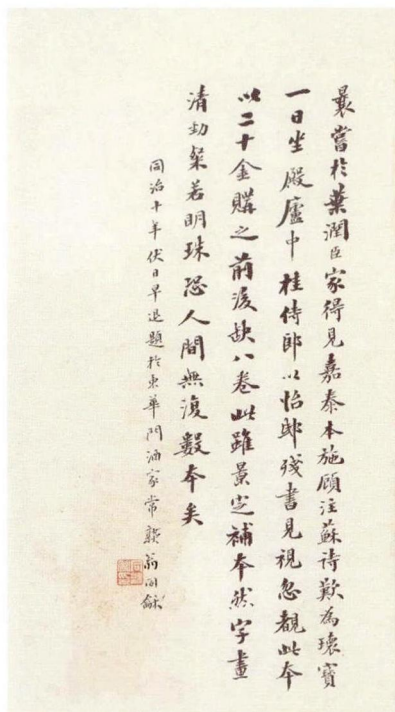 曩嘗於葉潤臣家得見嘉泰本施顧注蘇詩歎為瓌寶
一日坐殿廬中桂侍郎以怡邸殘書見視忽覩此本
以二十金購之前後缺八卷此雖景定補本然字畫
清勁粲若明珠恐人間無復數本矣
同治十年伏日早退題於東華門酒家常熟翁同龢